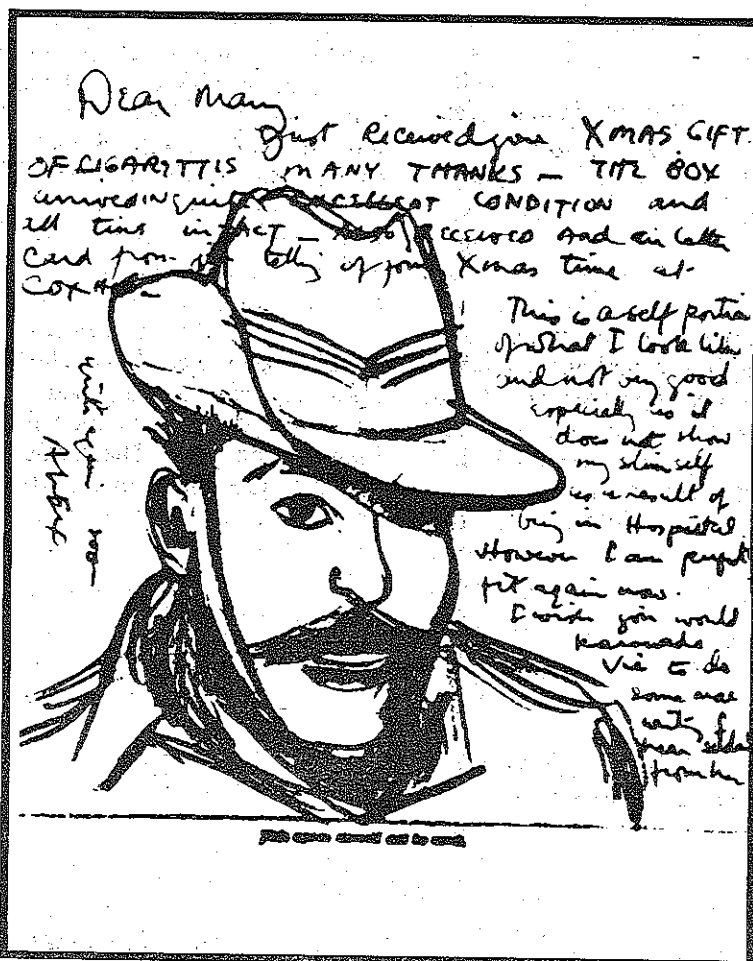 Dear Mary
Just Received your XMAS GIFT
OF CIGARITTIS MANY THANKS — THE BOX
arrived in quite EXCELLENT CONDITION and
all tins inTACT — ALSO RECEIVED And air letter
Card from telling of your Xmas time at
This is a self portrai
of what I look like
and not very good
especially as it
does not show
my slim self
as a result of
being in Hospital
However I am perfect
fit again now.
I wish you would
persuade
Vic to do
some more
writing I
hear seldom
from her
write again soon
This space should not be used.